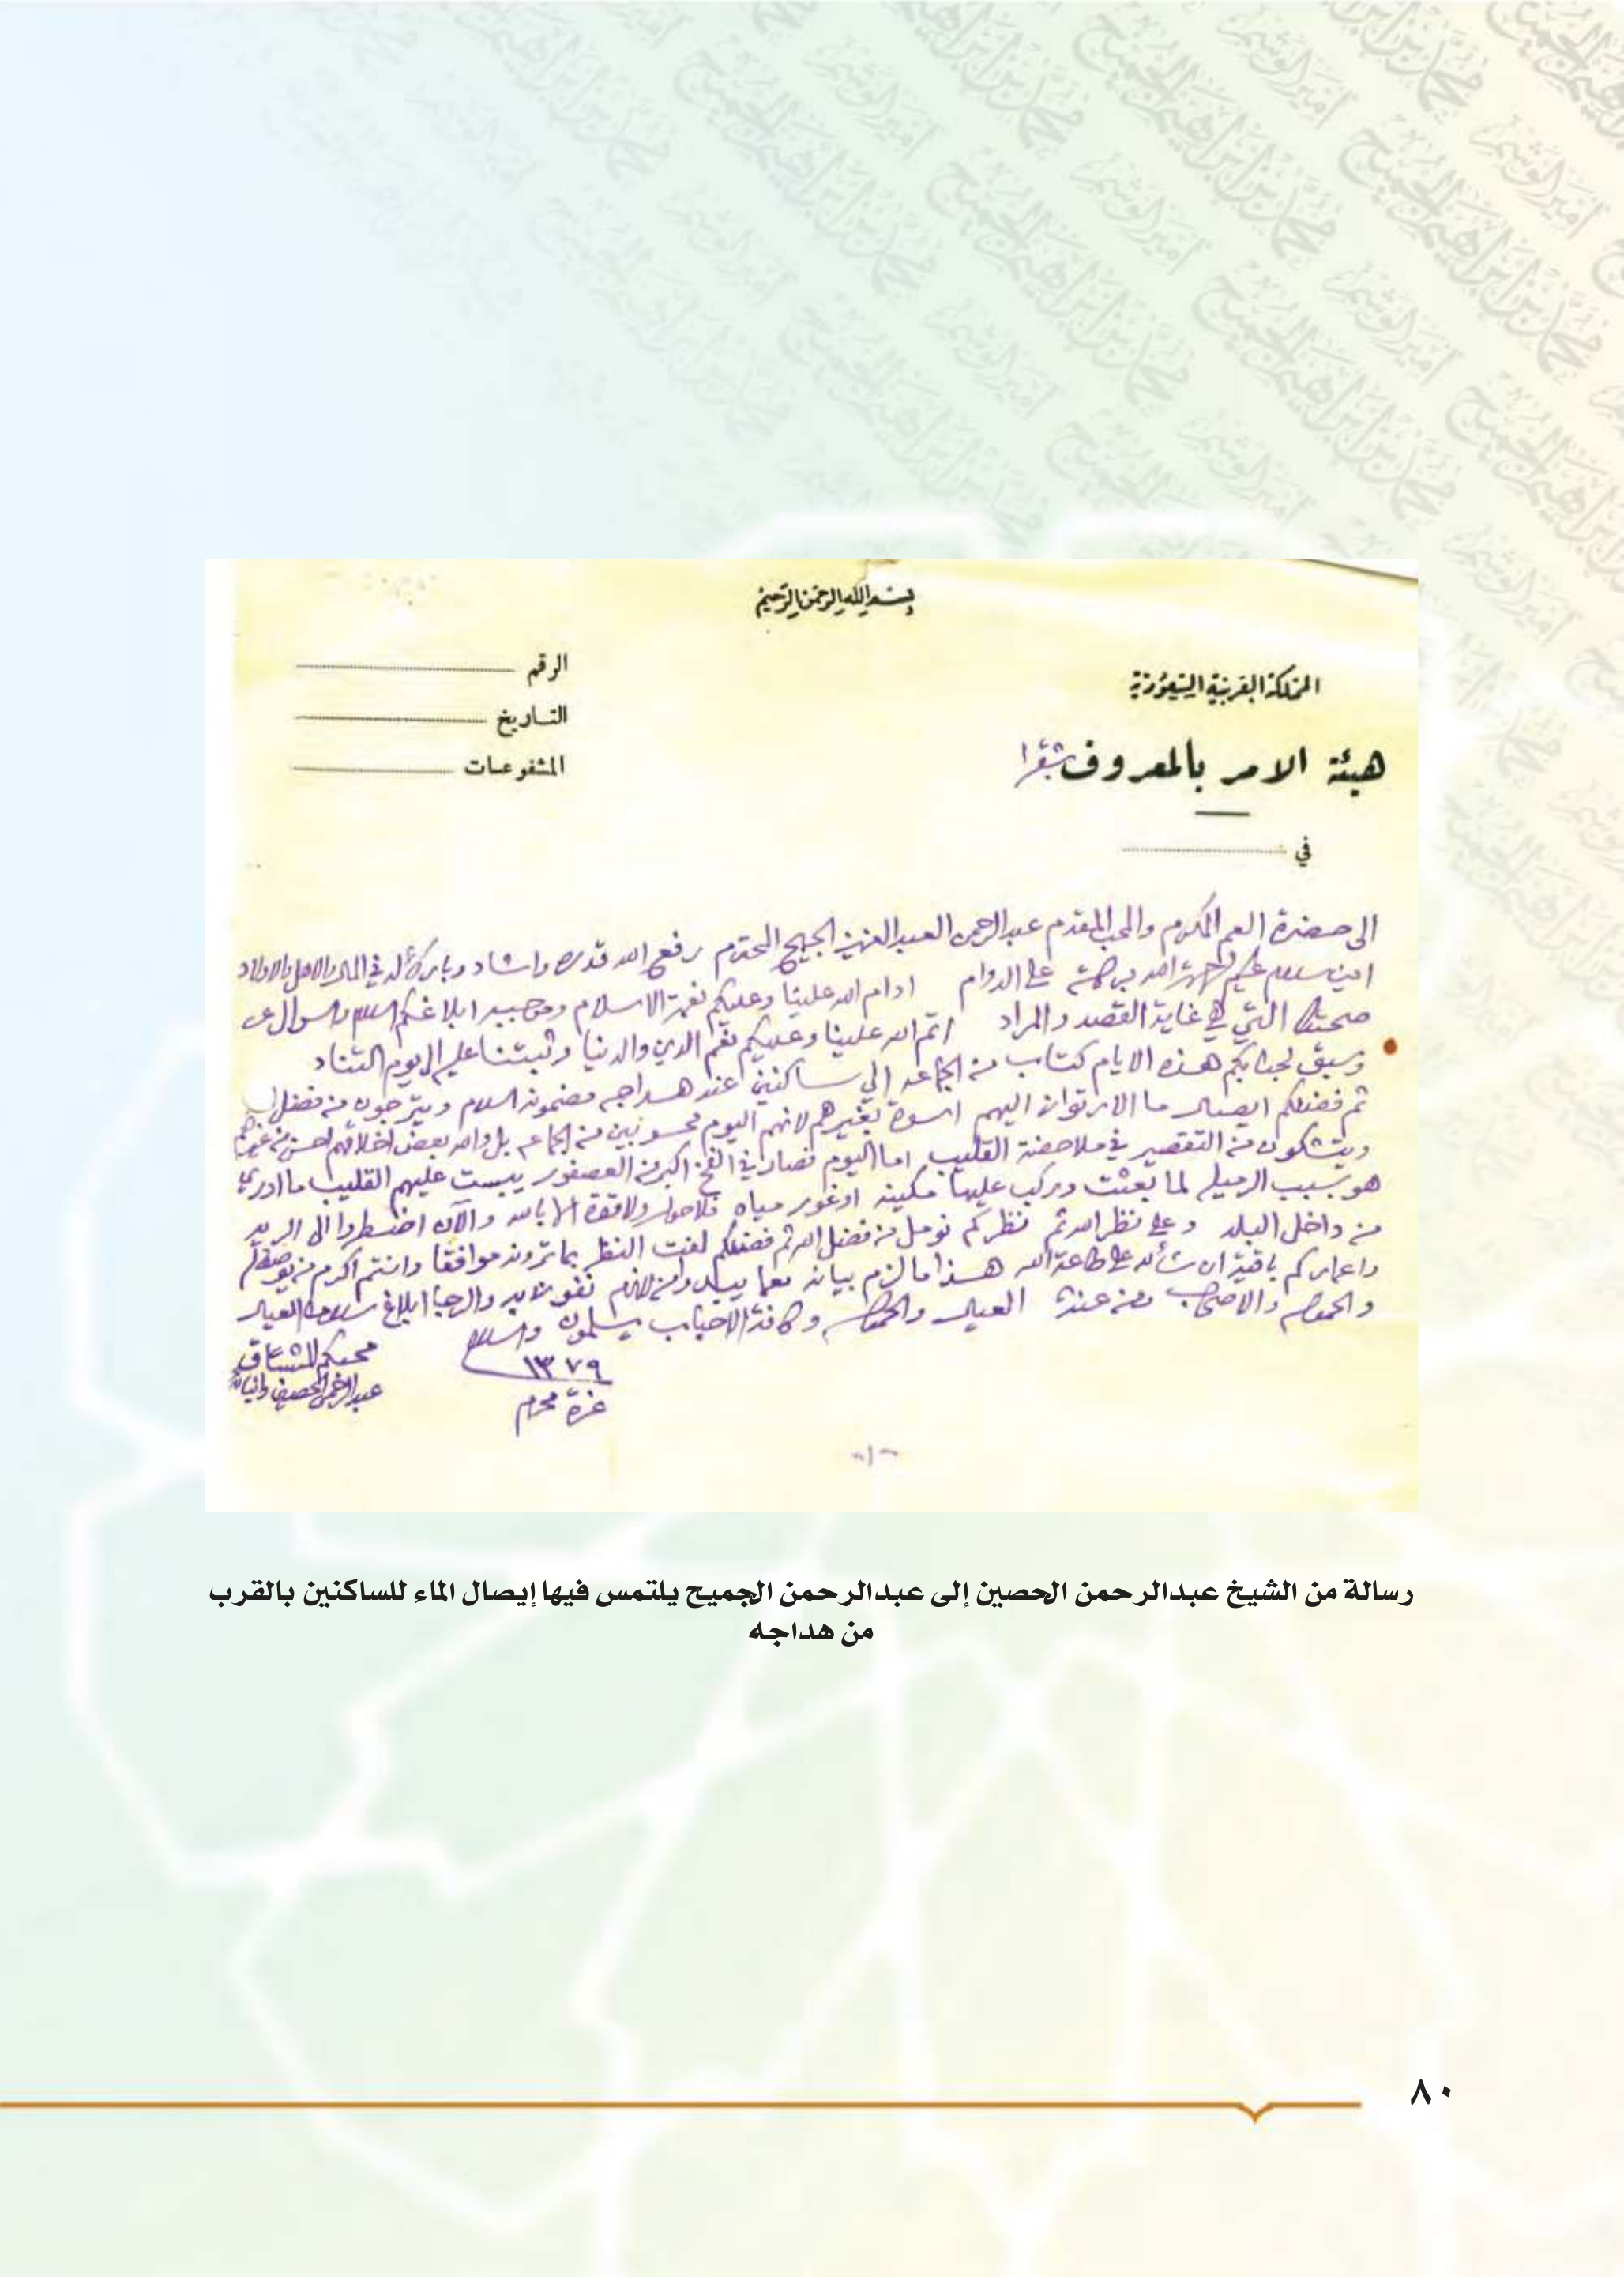 بسم الله الرحمن الرحيم
المملكة العربية السعودية
هيئة الامر بالمعروف شقرا
في
الرقم
التاريخ
المشفوعات
الى حضرة العم المكرم والمحب المقدم عبدالرحمن العبدالعزيز الجميح المحترم رفع الله قدره واشاد وبارك له في المال والاهل والاولاد
امين سلام عليكم ورحمة الله بركاته على الدوام ادام الله علينا وعليكم نعمة الاسلام وموجبه ابلاغكم السلام والسوال عن
صحتكم التي هي غاية القصد والمراد اتم الله علينا وعليكم نعم الدين والدنيا وثبتنا عليه الى يوم التناد
وسبق لجنابكم هذه الايام كتاب من الجماعه الي ساكنين عند هداجه مضمونه السلام ويترجون من فضل
ثم فضلكم ايصال ما الارتوازي اليهم اسوة بغيرهم لانهم اليوم محسوبين من الجماعه بل والله بعض اخلاقهم احسن من غيرهم
ويتشكون من التقصير في ملاحضة القليب اما اليوم فصار في الفخ اكبر من العصفور يبست عليهم القليب ما ادري
هو بسبب الرميل لما بعثت وركب عليها مكينه او غور مياه فلا حول ولا قوة الا بالله والآن اضطروا الى الري
من داخل البلد وعلى نظر الله ثم نظركم نومل من فضل الله ثم فضلكم لفت النظر بما ترونه موافقا وانتم اكرم من
واعماركم باقية ان شاء الله على طاعة الله هذا ما لزم بيانه مع ما يبدو من لازم نفوز به والرجا ابلاغ سلامنا العيال
والحمولة والاصحاب ومن عندنا العيال والحمولة وكافة الاحباب يسلمون والسلام
١٣٧٩
غرة محرم
محبكم المشتاق
عبدالرحمن الحصين
رسالة من الشيخ عبدالرحمن الحصين إلى عبدالرحمن الجميح يلتمس فيها إيصال الماء للساكنين بالقرب
من هداجه
٨٠